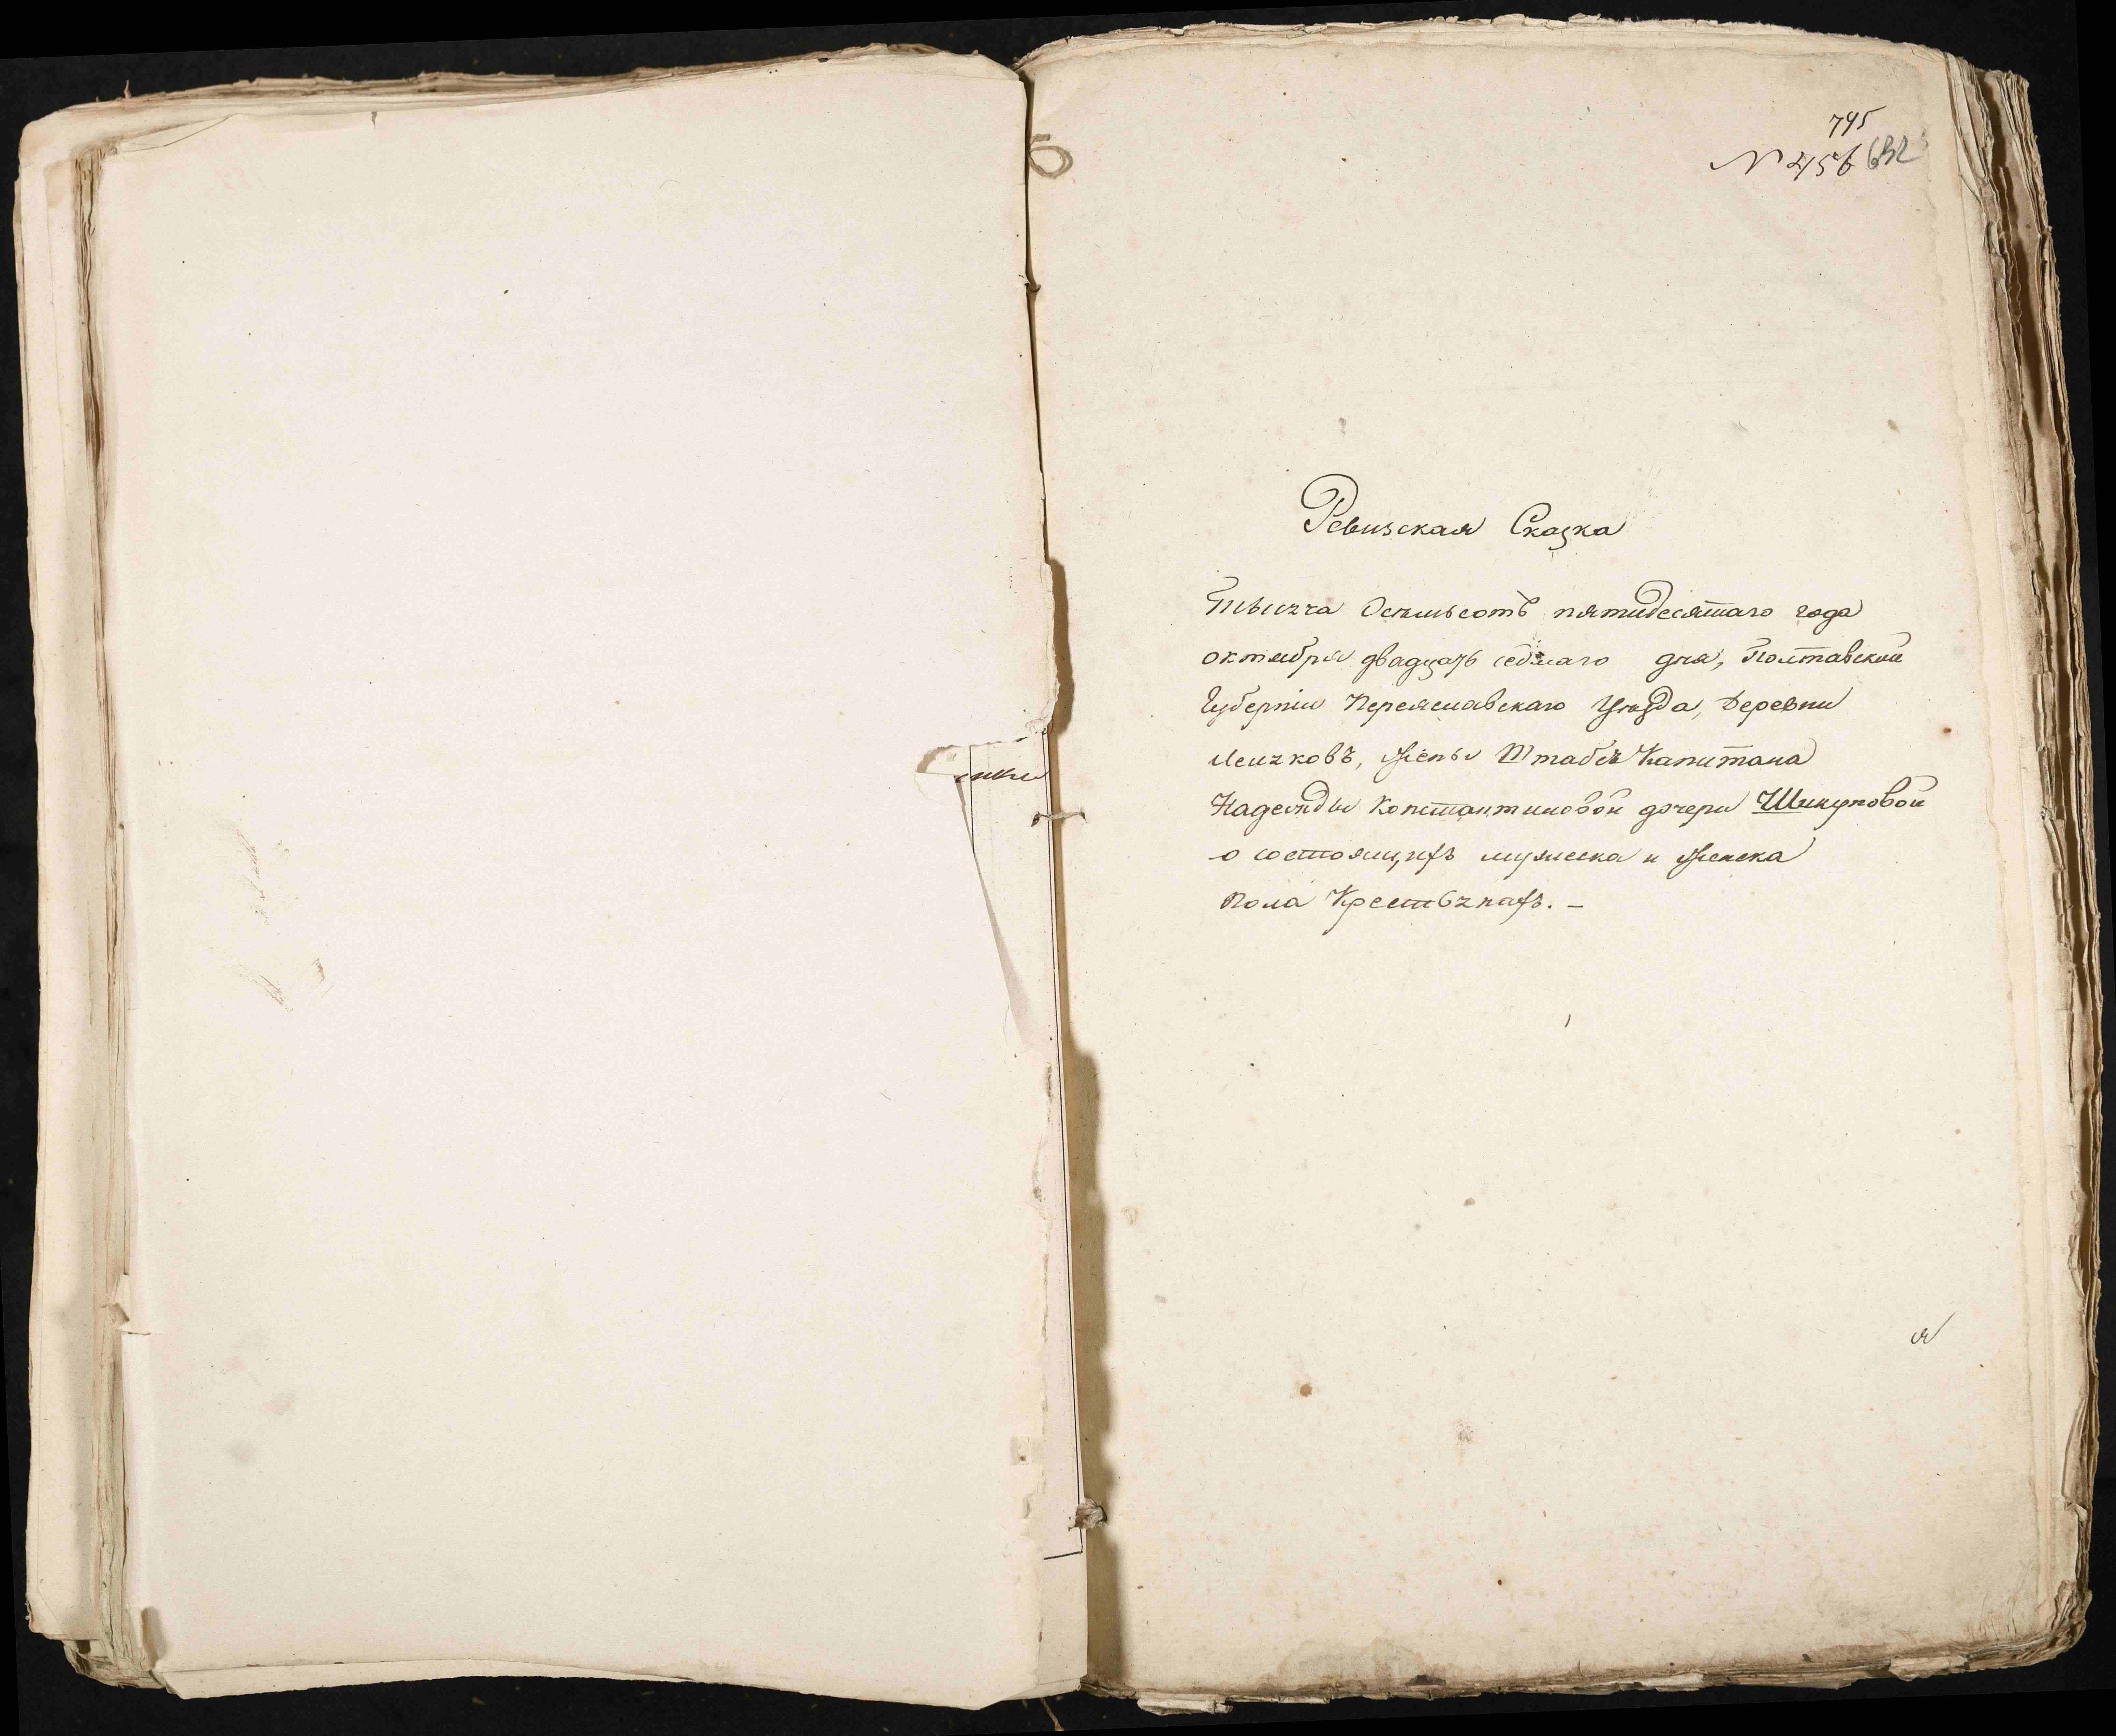 795
N 456 632
Ревизская Сказка
Тысяча Осемьсотъ пятидесятаго года
октября двадцать седмаго дня, Полтавской
Губерніи Переяславскаго Уѣзда, Деревни
жены Штабсъ Капитана
Надежды Константиновой дочери
о состоящихъ мужеска и женска
пола Крестьянахъ. –